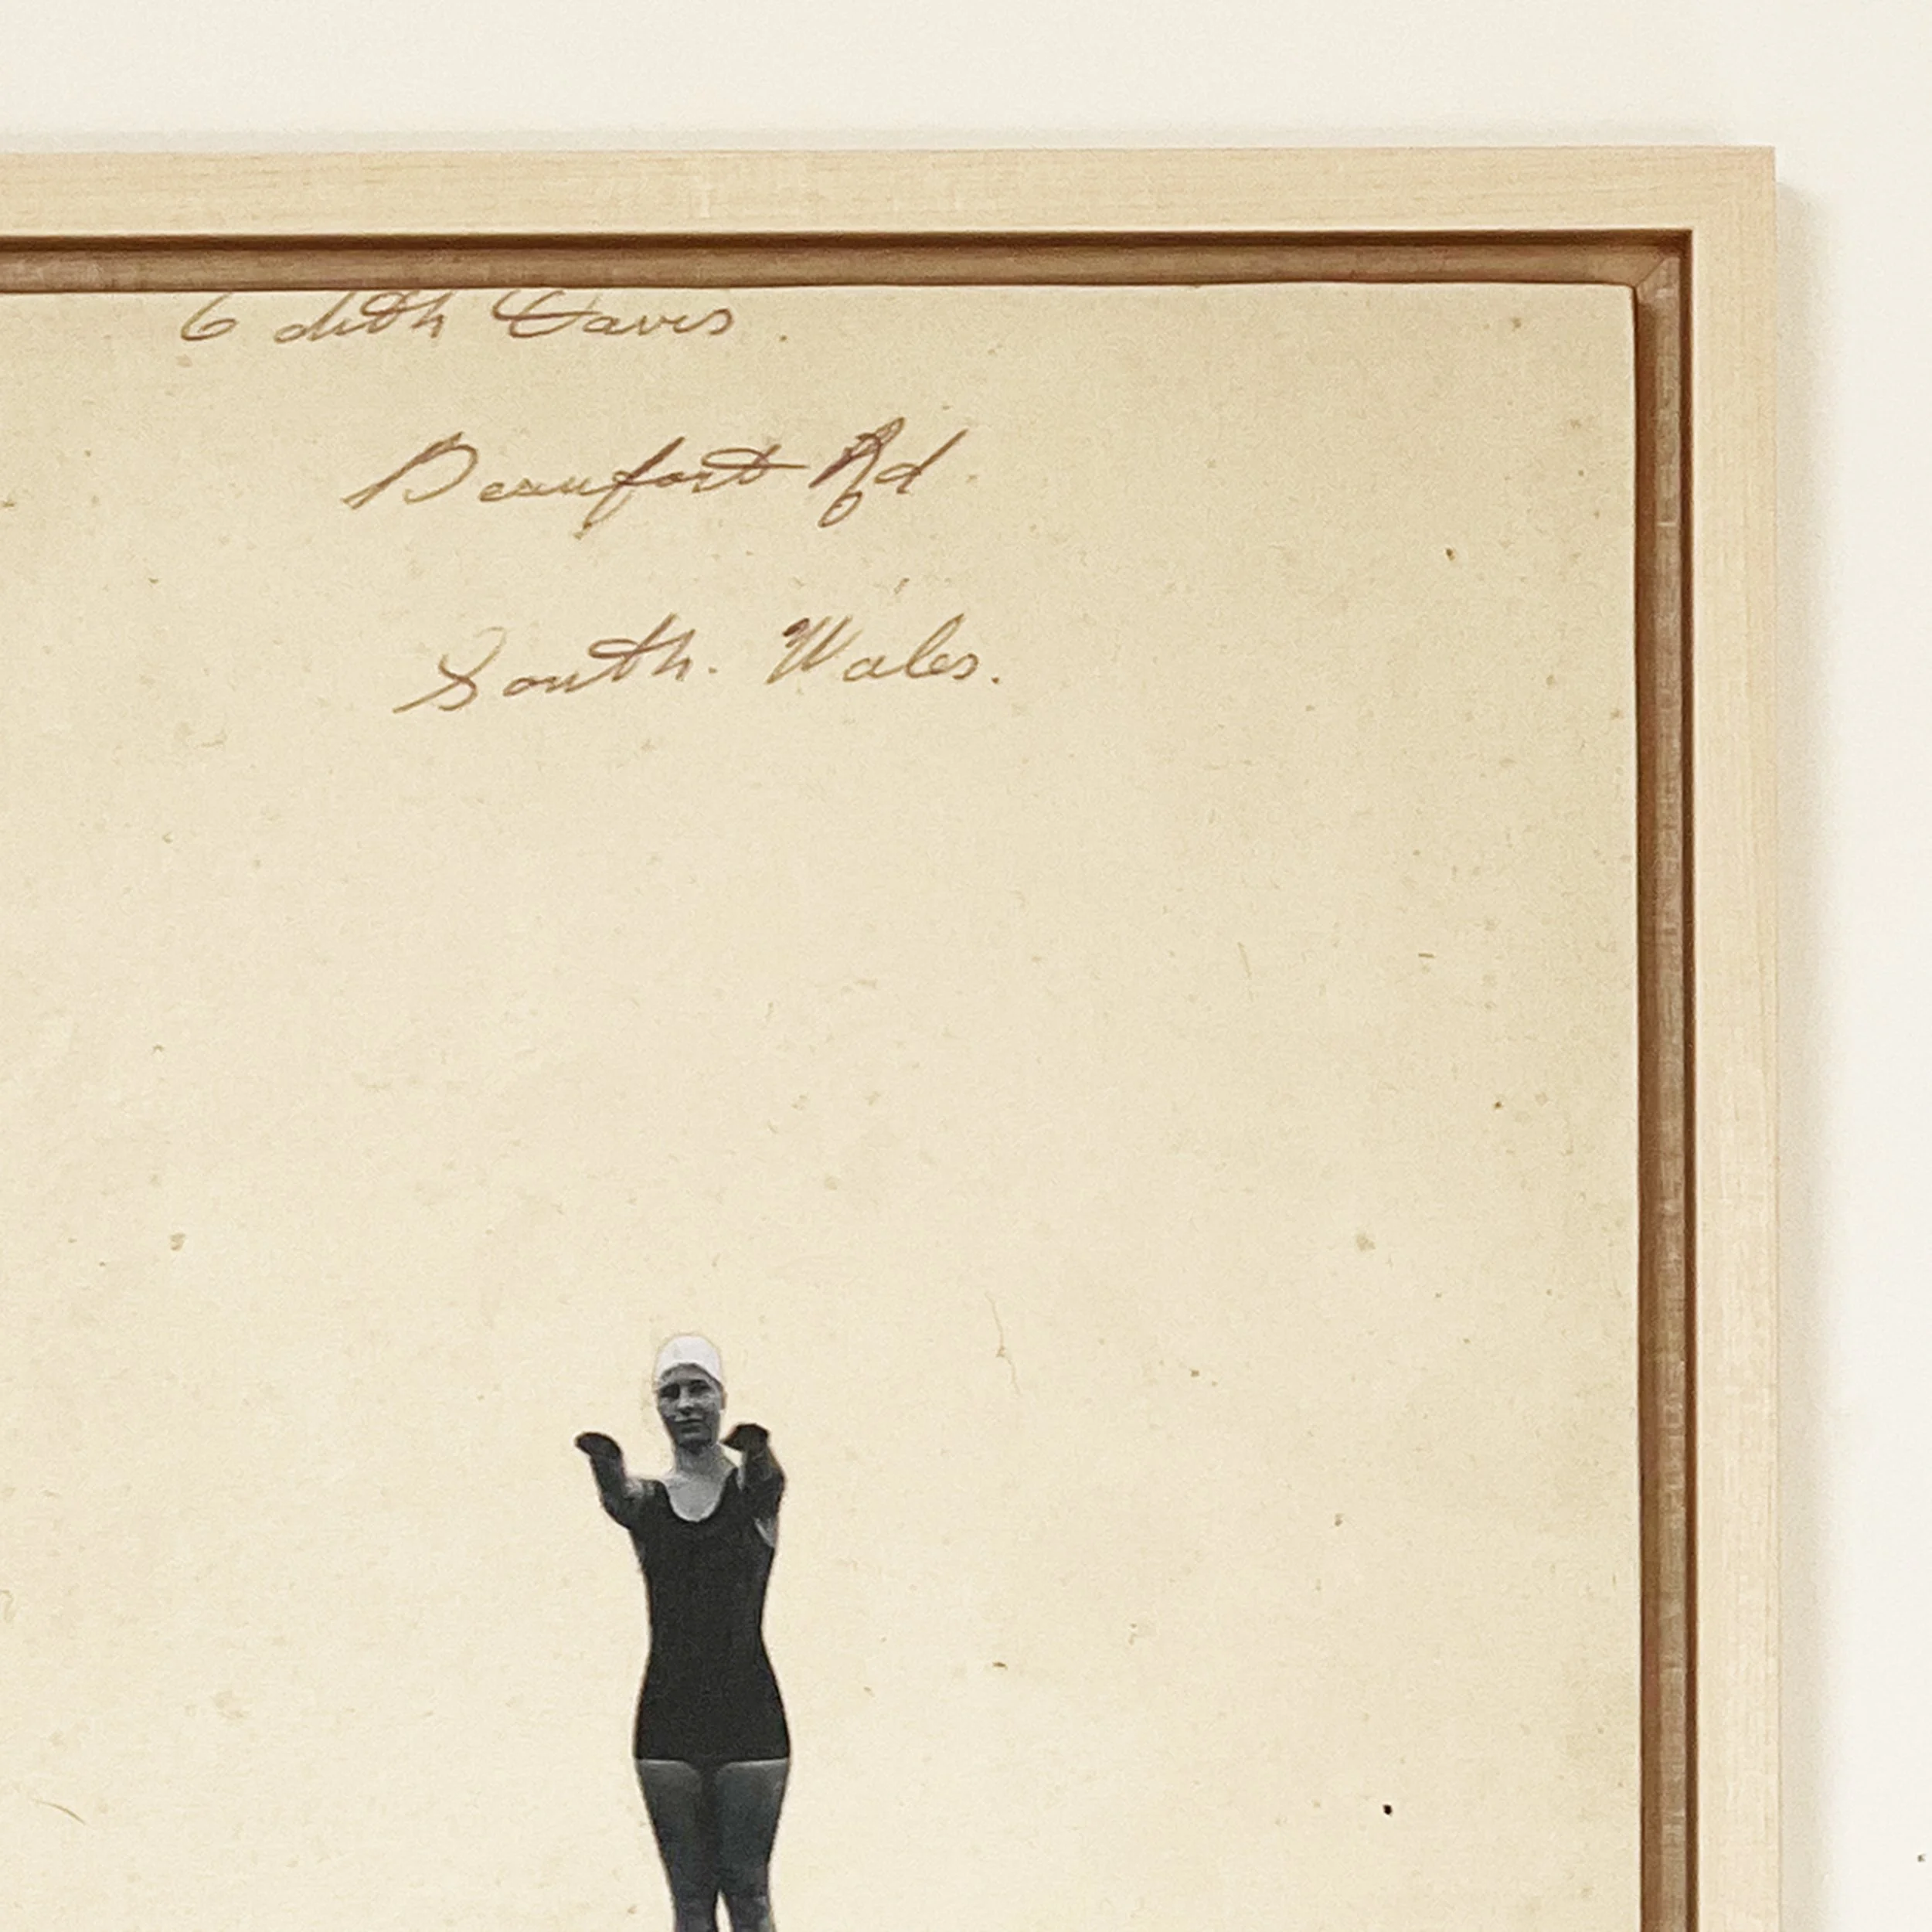 Edith Davis.
Beaufort Rd
South. Wales.